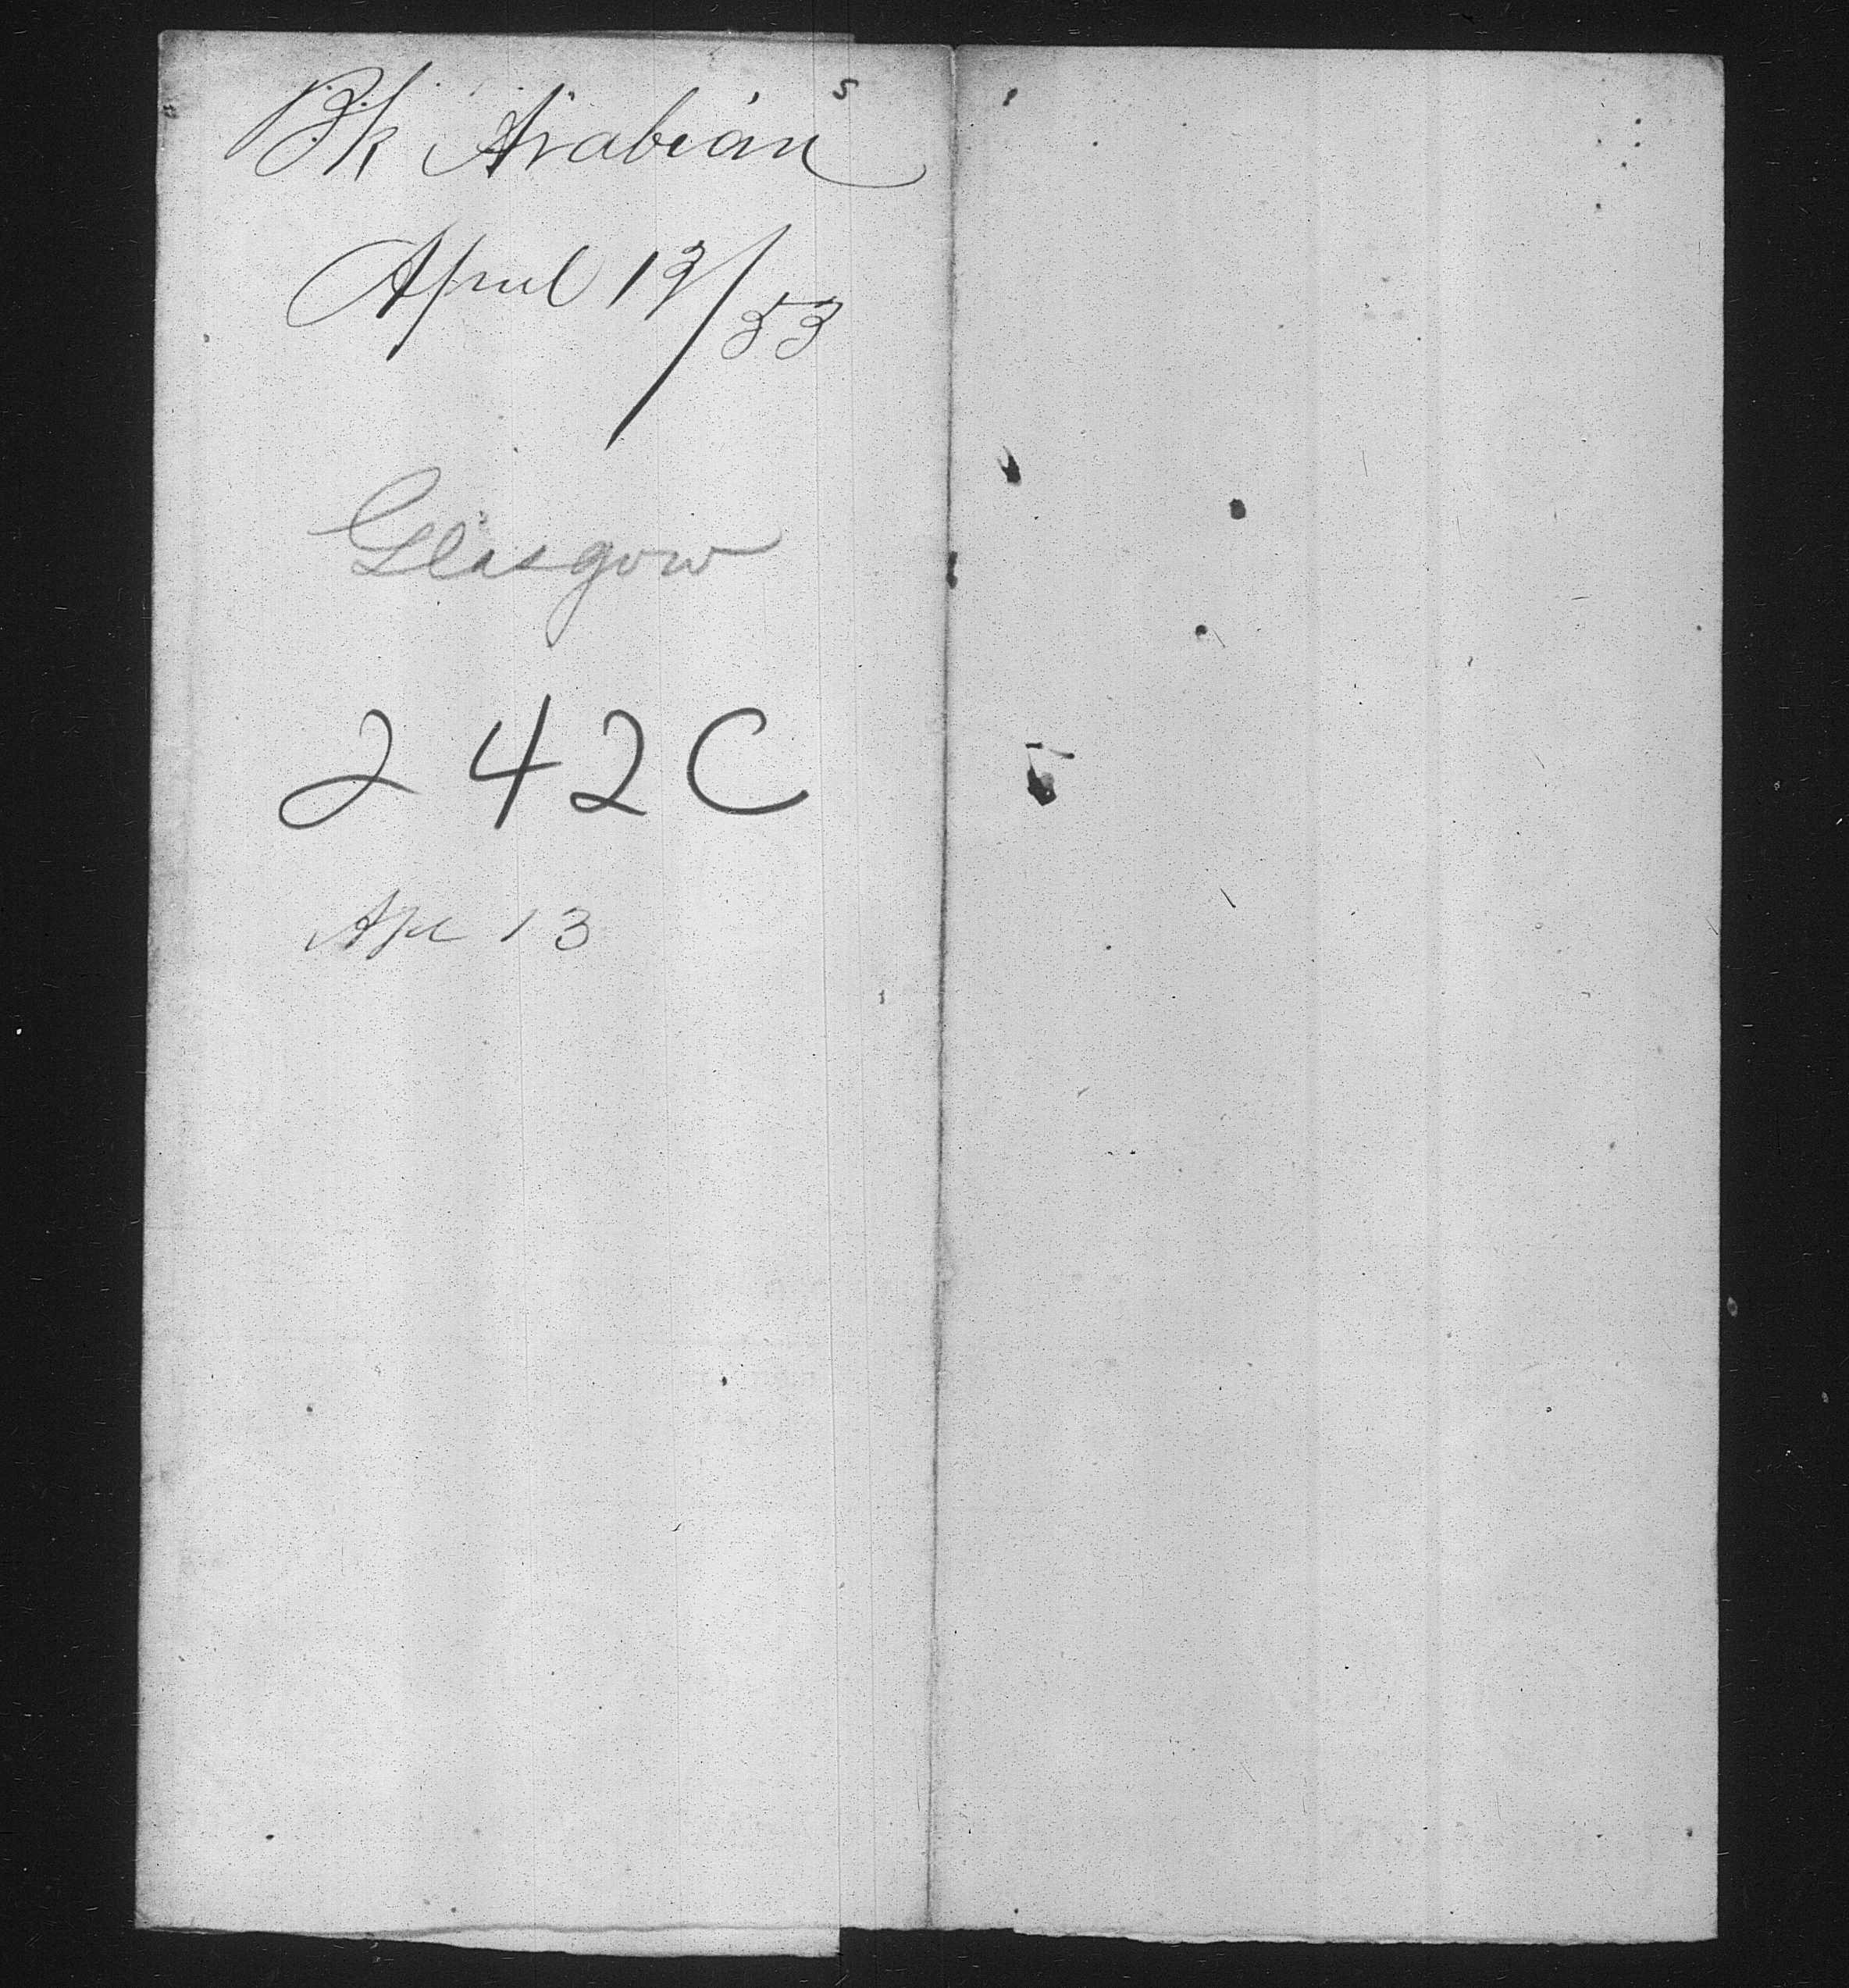 Bk Arabian
April 13/53
Glasgow
242C
Apl 13